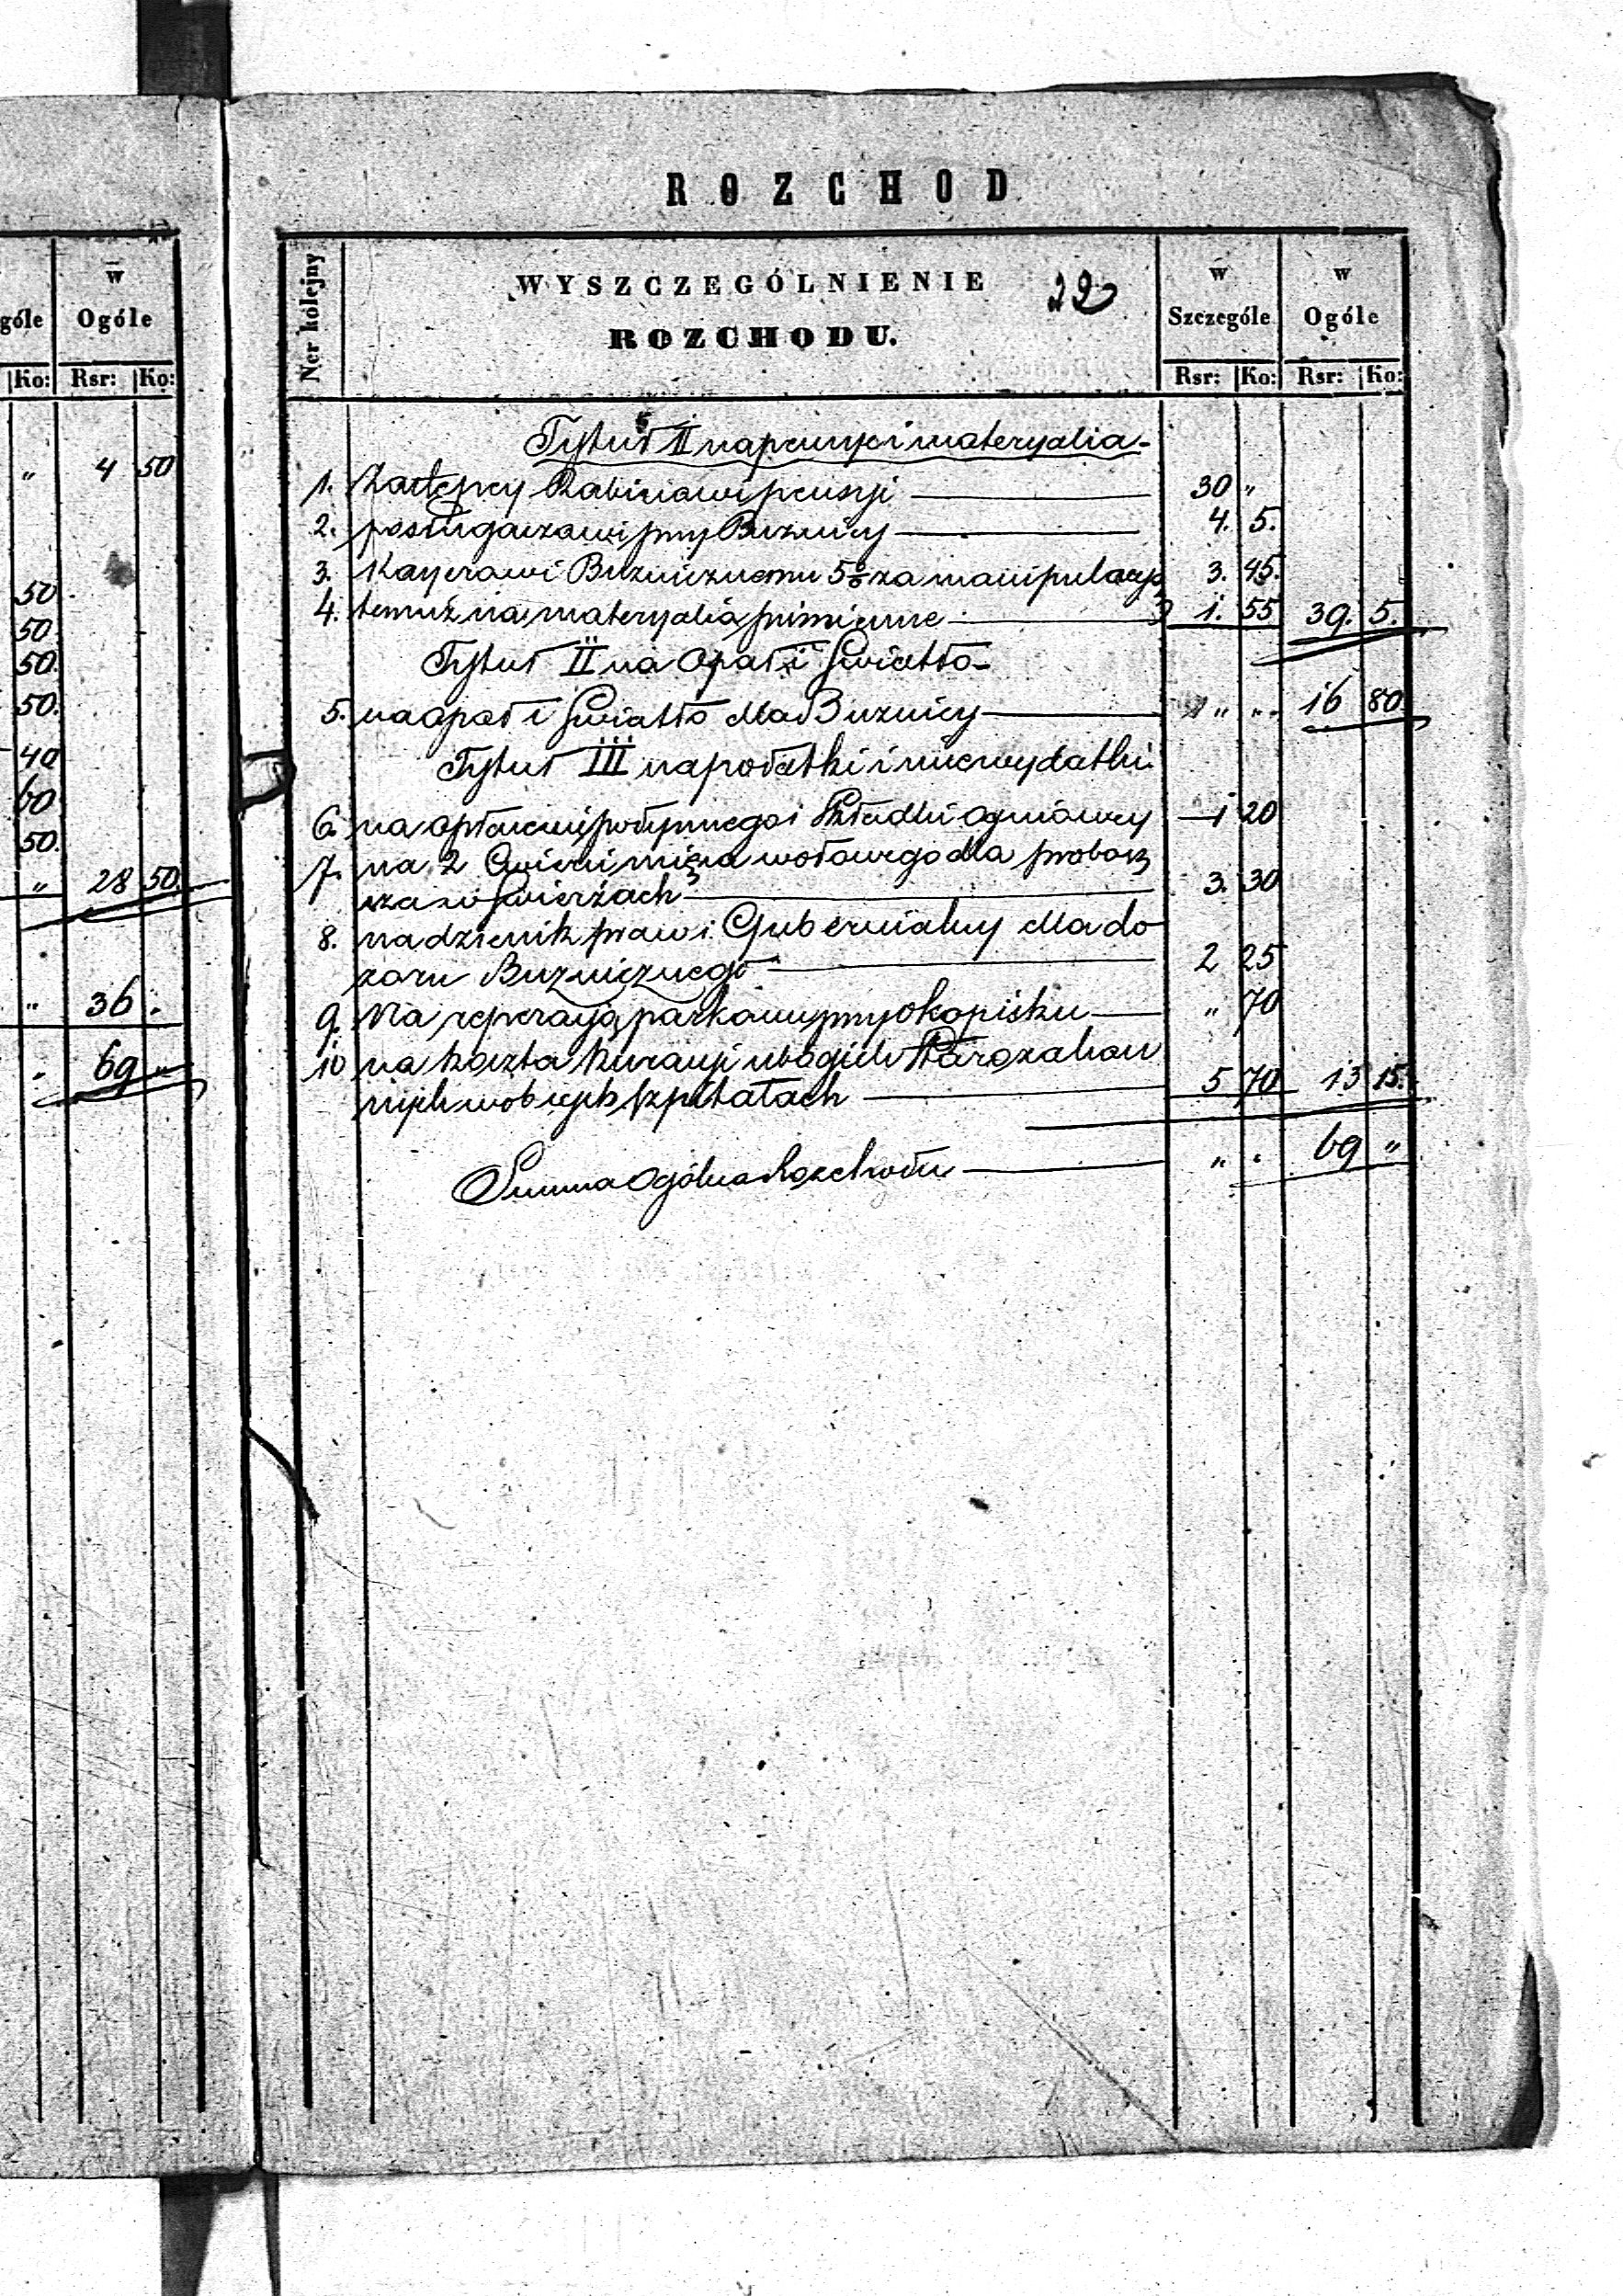 ROZCHOD
góle
w
Ogóle
Ko: Rsr: Ko:
" 4 50
50
50
50.
50.
40
60
50.
" 28 50.
" 36 .
. 69 "
Ner kolejny
WYSZCZEGÓLNIENIE 22
ROZCHODU.
w
Szczególe
w
Ogóle
Rsr: Ko: Rsr: Ko:
Tytuł I na pensye i materyalia-
1. Zastępcy Rabina pensyi 30 "
2. posługaczowi przy Bużnicy 4. 5.
3. Kasyerowi Bużnicznemu 5% za manipulacyę 3. 45.
4. temuż na materyalia piśmienne 1. 55 39. 5.
Tytuł II na Opał i Światło-
5. na opał i Światło dla Bużnicy " " 16 80.
Tytuł III na podatki i inne wydatki
6. na opłacenie podymnego i Składki ogniowey 1 20
7. na 2 Cwierci mięsa wołowego dla probosz
cza w Świerżach 3. 30
8. na dziennik praw i Gubernialny dla do
zoru Bużnicznego 2 25
9. Na reperacyją parkanu przy okopisku " 70
10 na koszta kuracyi ubogich Starozakon
nych w obcych szpitalach 5 70 13 15.
Summa Ogólna Rozchodu " . 69 "